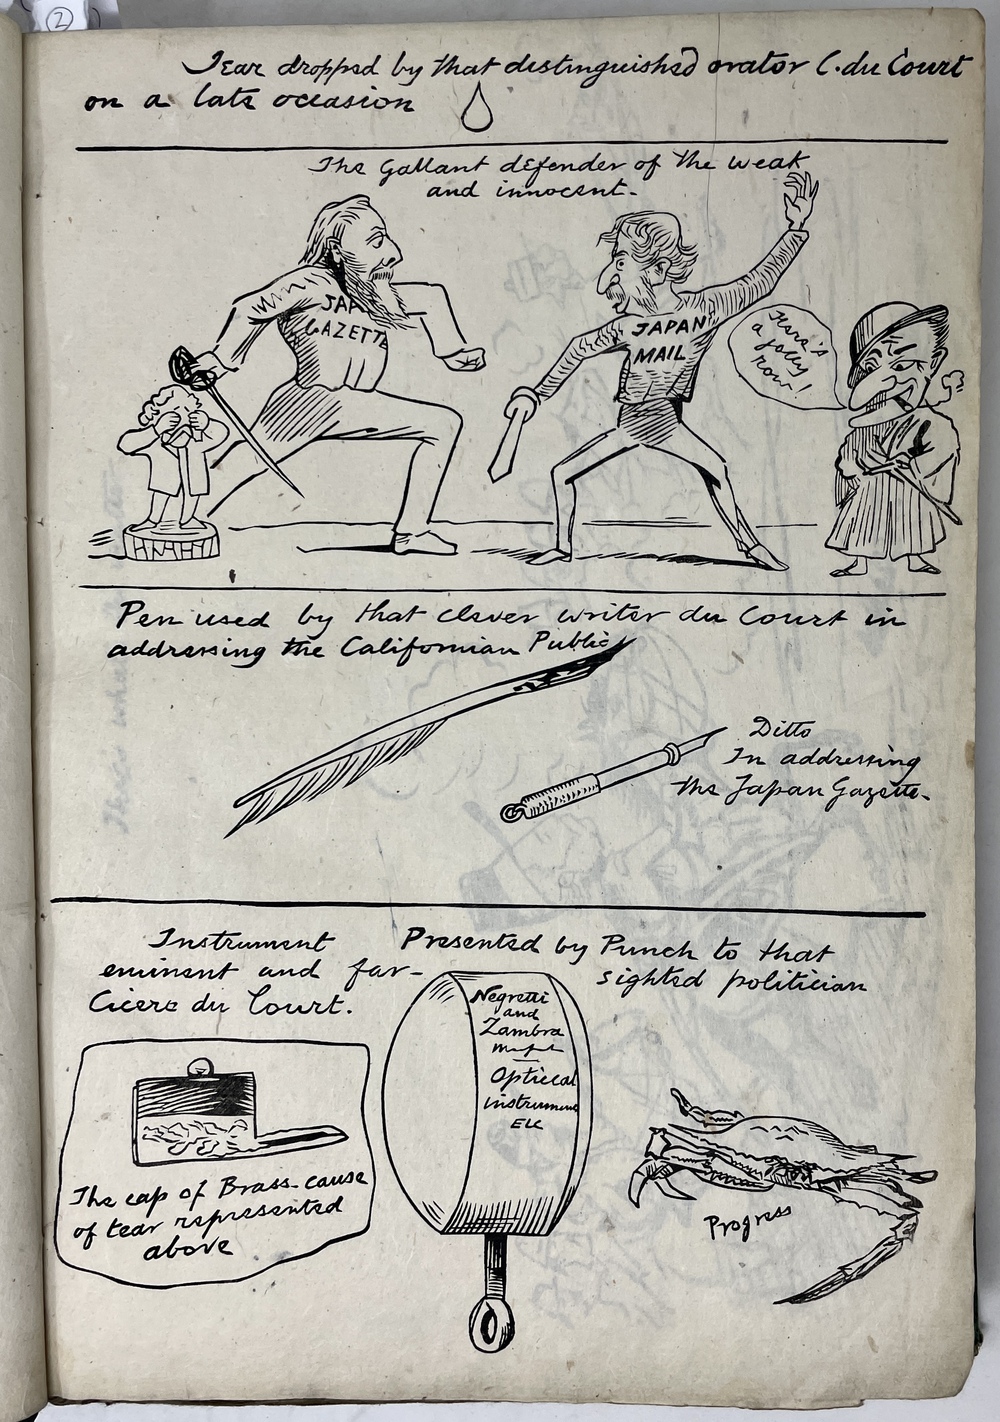 2
Tear dropped by that distinguished orator C. du Court
on a late occasion
The Gallant defender of the weak
and innocent.
JAP
GAZETTE
JAPAN
MAIL
Here's
a jolly
row!
Pen used by that clever writer du Court in
addressing the Californian Public
Ditto
In addressing
the Japan Gazette.
Instrument Presented by Punch to that
eminent and far-sighted politician
Cicero du Court.
Negretti
and
Zambra
Optical
instruments
Etc
The cap of Brass cause
of tear represented
above
Progress